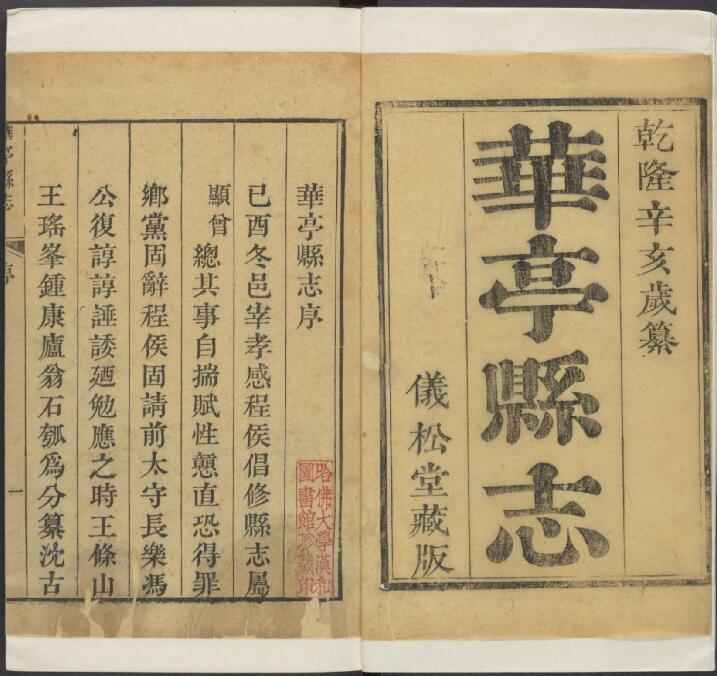 乾隆辛亥歲纂
華亭縣志
儀松堂藏版
華亭縣志序
哈佛大學漢和
圖書館珍藏印
己酉冬邑宰孝感程侯倡修縣志屬
顯曾總其事自揣賦性戇直恐得罪
鄉黨固辭程侯固請前太守長樂馮
公復諄諄諈諉廼勉應之時王條山
王瑤峯鍾康廬翁石瓠為分纂沈古
華亭縣志
序
一